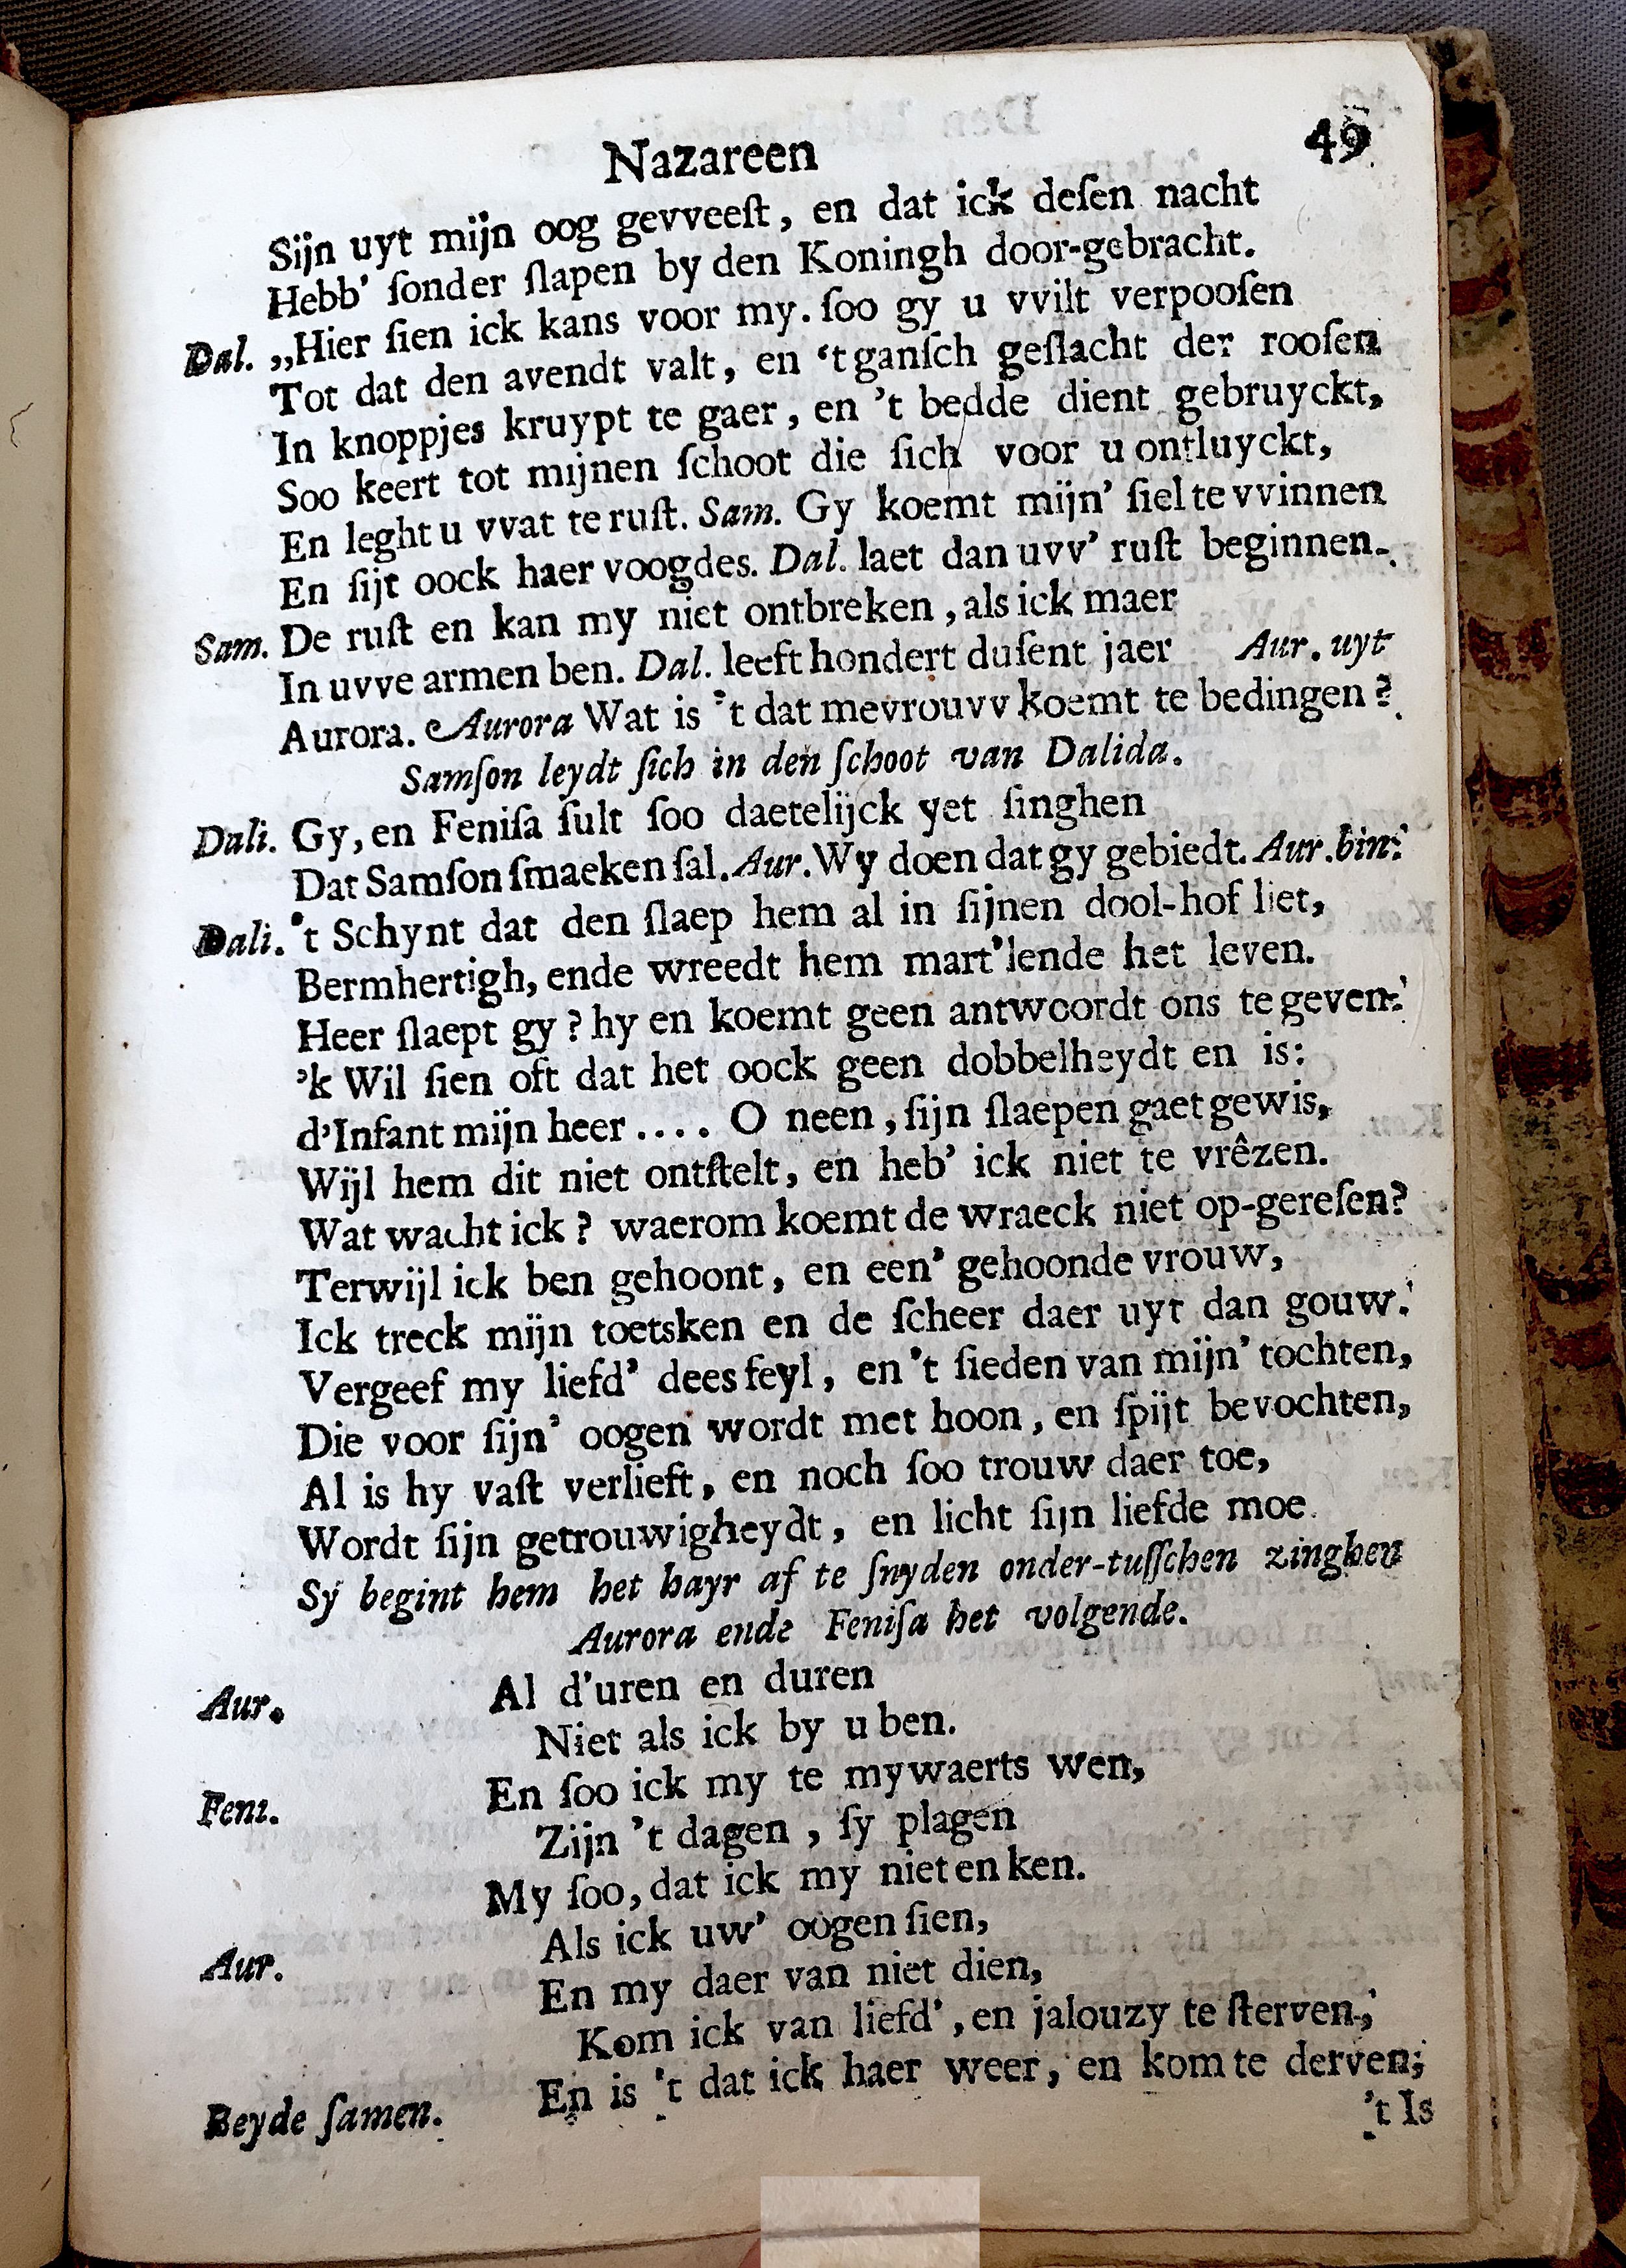 Nazareen 49
Sijn uyt mijn oog gevveeſt, en dat ick deſen nacht
Hebb' ſonder ſlapen by den Koningh door-gebracht.
Dal. ,,Hier ſien ick kans voor my. ſoo gy u vvilt verpooſen
Tot dat den avendt valt, en ‘t ganſch geſlacht der rooſen
In knoppjes kruypt te gaer, en 't bedde dient gebruyckt,
Soo keert tot mijnen ſchoot die ſich voor u ontluyckt,
En leght u vvat te ruſt. Sam. Gy koemt mijn' ſiel te vvinnen
En ſijt oock haer voogdes. Dal. laet dan uvv' ruſt beginnen.
Sam. De ruſt en kan my niet ontbreken, als ick maer
In uvve armen ben. Dal. leeft hondert duſent jaer Aur. uyt
Aurora. Aurora Wat is 't dat mevrouvv koemt te bedingen?
Samſon leydt ſich in den ſchoot van Dalida.
Dali. Gy, en Feniſa ſult ſoo daetelijck yet ſinghen
Dat Samſon ſmaeken ſal. Aur. Wy doen dat gy gebiedt. Aur. bin:
Dali. 't Schynt dat den ſlaep hem al in ſijnen dool-hof liet,
Bermhertigh, ende wreedt hem mart'lende het leven.
Heer ſlaept gy? hy en koemt geen antwoordt ons te geven:
'k Wil ſien oft dat het oock geen dobbelheydt en is:
d'Infant mijn heer .... O neen, ſijn ſlaepen gaet gewis,
Wijl hem dit niet ontſtelt, en heb' ick niet te vrêzen.
Wat wacht ick? waerom koemt de wraeck niet op-gereſen?
Terwijl ick ben gehoont, en een' gehoonde vrouw,
Ick treck mijn toetsken en de ſcheer daer uyt dan gouw.
Vergeef my liefd' dees feyl, en 't ſieden van mijn' tochten,
Die voor ſijn' oogen wordt met hoon, en ſpijt bevochten,
Al is hy vaſt verlieft, en noch ſoo trouw daer toe,
Wordt ſijn getrouwigheydt, en licht ſijn liefde moe.
Sy begint hem het hayr af te ſnyden onder-tuſſchen zinghen
Aurora ende Feniſa het volgende.
Aur. Al d'uren en duren
Niet als ick by u ben.
Feni. En ſoo ick my te mywaerts wen,
Zijn 't dagen, ſy plagen
My ſoo, dat ick my niet en ken.
Als ick uw' oogen ſien,
Aur. En my daer van niet dien,
Kom ick van liefd', en jalouzy te ſterven,
En is 't dat ick haer weer, en kom te derven;
Beyde ſamen. 't Is